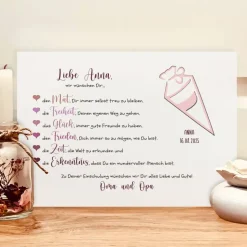 Liebe Anna,
wir wünschen Dir...
den Mut, Dir immer selbst treu zu bleiben,
die Freiheit, Deinen eigenen Weg zu gehen,
das Glück, immer gute Freunde zu haben,
den Frieden, Dich immer so zu mögen, wie Du bist,
die Zeit, die Welt zu erkunden und
die Erkenntnis, dass Du ein wundervoller Mensch bist.
Zu Deiner Einschulung wünschen wir Dir alles Liebe und Gute!
Oma und Opa
ANNA